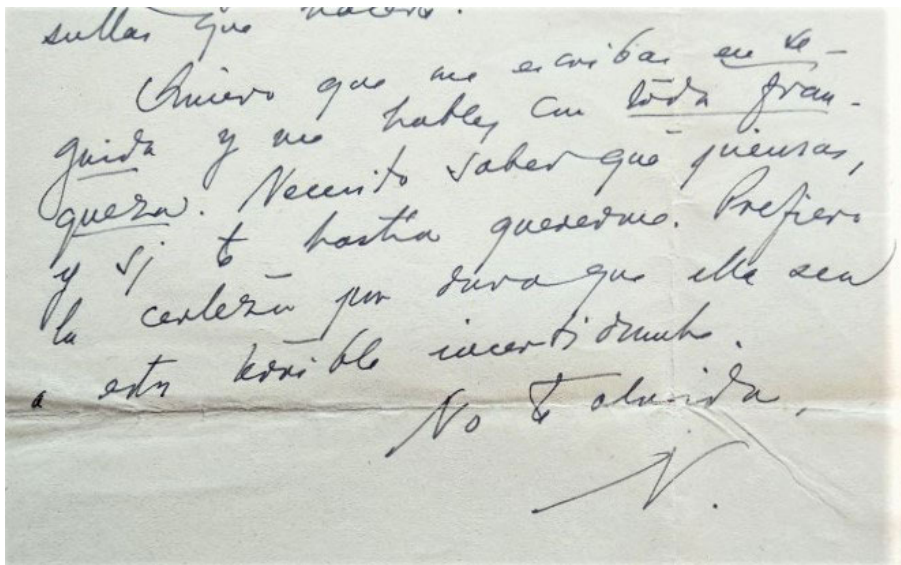 que hacerse.
Quiero que me escribas en se-
guida y me hables con toda fran-
queza. Necesito saber qué piensas,
y si te hastía quererme. Prefiero
la certeza por dura que ella sea
a esta horrible incertidumbre.
No te olvida,
N.